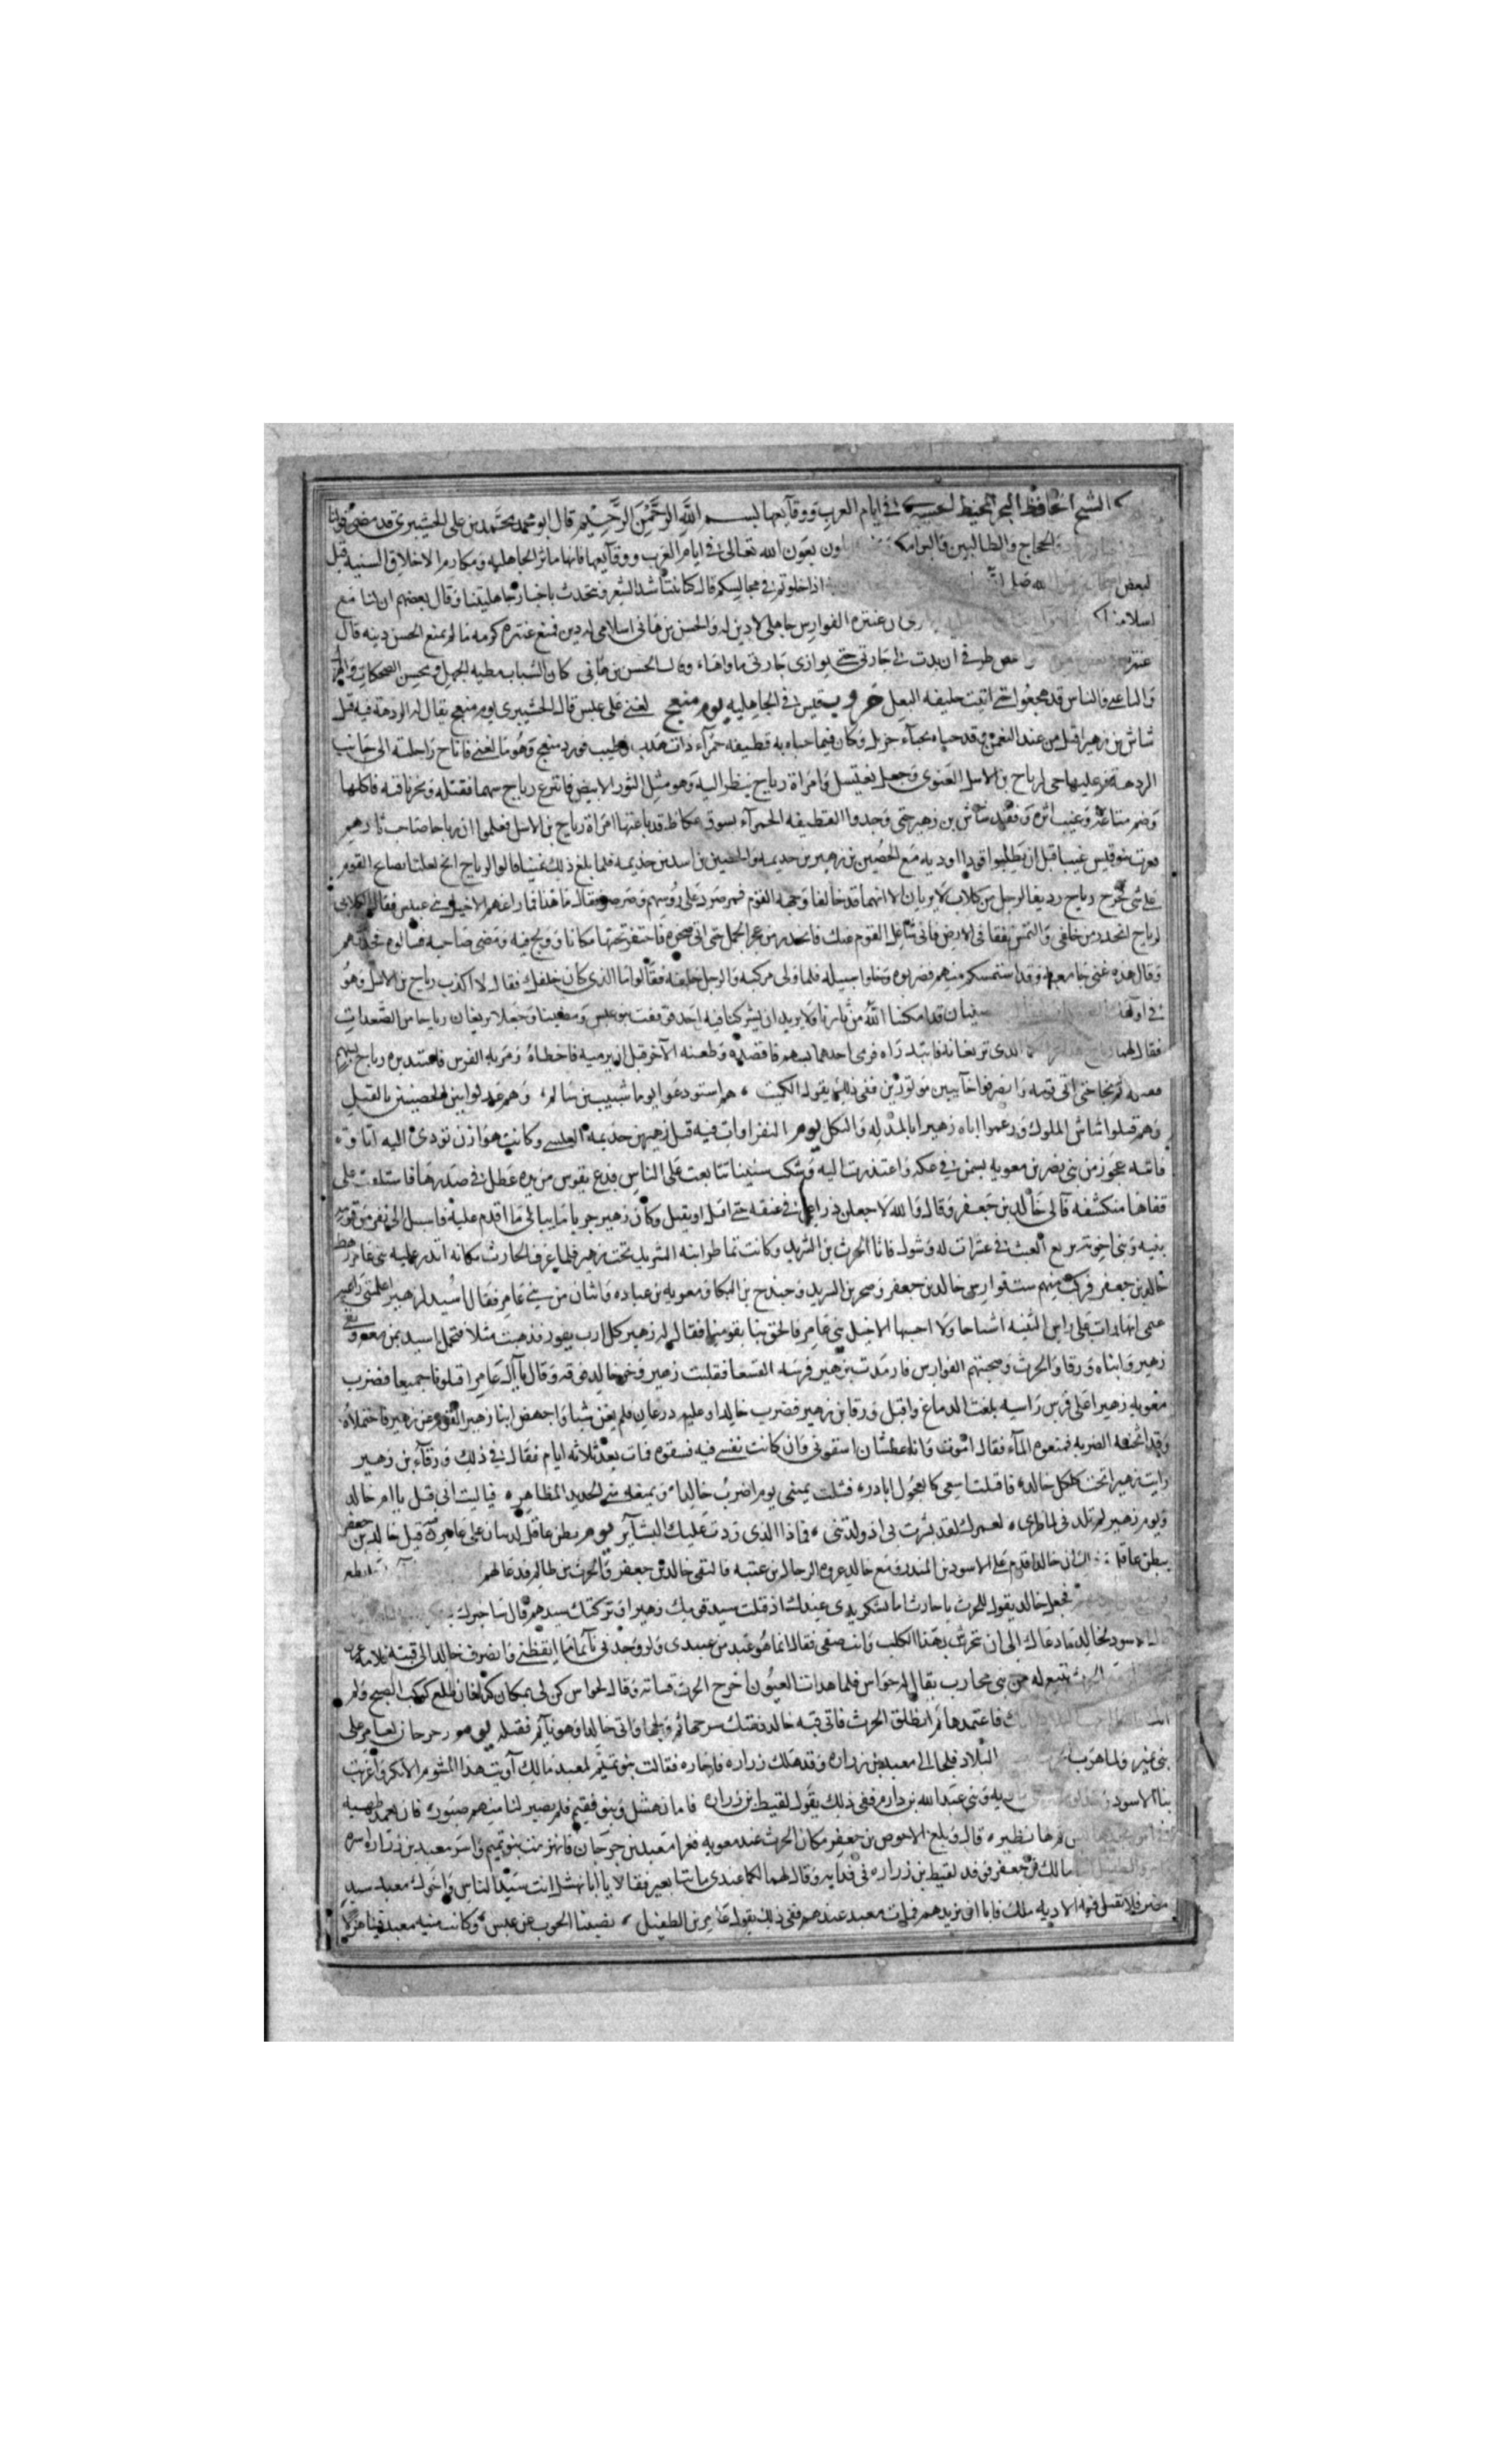 الشيخ الحافظ البحر المحيط في ايام العرب ووقايعها بسم الله الرحمن الرحيم قال ابو محمد محمد بن علي الحشيبري قد مضى قولنا
والحجاج والطالبيين والبرامكة بعون الله تعالى في ايام العرب ووقايعها فانها ماثر الجاهليه ومكارم الاخلاق السنيه قيل
لبعض الله صلى اذا خلوتم في مجالسكم قال كنا نتناشد الشعر ونتحدث باخبار جاهليتنا وقال بعضهم ان لنا مع
اسلامنا ان عنتره الفوارس جاهلي لا دين له والحسن بن هانى اسلامي له دين فمنع عنتره كرمه ما لم يمنع الحسن دينه قال
عنتره طرفي ان بدت لي جارتي حتى يوارى جارتي ماواها وقال الحسن بن هاني كان الشباب مطيه الجهل ومحسن الضحكات
والناس قد هجعوا حتى اتيت حليفه البعل حروب قيس في الجاهليه يوم منعج لغني على عبس قال الحشيبري يوم منعج يقال له الردهه فيه قتل
شاس بن زهير اقبل من عند النعمن وقد حباه بحباء جزيل وكان فيما حباه به قطيفه حمراء ذات هدب وطيب فورد منعج وهو ما لغني فاناخ راحلته الى جانب
الردهه وعليها لرياح بن الاسل الغنوى وجعل يغتسل وامراة رياح ينظر اليه وهو مثل الثور الابيض فانتزع رياح سهما فقتله ونحر ناقته فاكلها
وضم متاعه وغيب اثره وفقد شاس بن زهير حتى وجدوا القطيفه الحمراء بسوق عكاظ قد باعتها امراة رياح بن الاسل فعلموا ان رياحا صاحب ثارهم
فغزت بنو قيس غنيا قبل ان يطلبوا قودا او ديه مع الحصين بن زهير بن جذيمه والحصين بن اسد بن جذيمه فلما بلغ ذلك غنيا قالوا لرياح انج لعلنا نصالح القوم
على شي فخرج رياح رديفا لرجل من كلاب لا يريان الا انهما قد خالفا وجهه القوم فمر صرد على روسهم وصرصر فقال ما هذا فما راعهم الا خيل بني عبس فقال الكلابي
لرياح انحدر من خلفي والتمس نفقا في الارض فاني شاغل القوم عنك فانحدر من عجز الجمل حتى اتى صخره فاحتفر تحتها مكانا وولج فيه ومضى صاحبه فسالوه فحدثهم
وقال هذه غني جامعه وقد استمكنتم منهم فصدقوه وخلوا سبيله فلما ولى مركبه والرجل خلفه فقالوا ما الذي كان خلفك فقال لا اكذب رياح بن الاسل وهو
في اولئك قد امكننا الله من ثارنا ولا يريد ان يشركنا فيه احد فوقفت بنو عبس ومضينا وجعلا يريغان رياحا من الصعدات
فقال لهما رياح الذي تريغانه فابتدراه فرمى احدهما بسهم فاقصده وطعنه الآخر قبل ان يرميه فاخطاه ومر به الفرس فاستدبره رياح بسهم
ثم نجا حتى اتى قومه وانصرفوا خايبين موتورين ففي ذلك يقول الكميت هم استودعوا يوما شبيب بن سالم وهم عدلوا بين الحصينين بالقتيل
وهم قتلوا شاس الملوك ورغموا اباه زهيرا بالمذله والنكل يوم النفراوات فيه قتل زهير بن جذيمه العبسي وكانت هوازن تودي اليه اتاوه
فاتته عجوز من بني نصر بن معويه بسمن في عكه واعتذرت اليه وشكت سنينا تتابعت على الناس فدع بقوس من يده عطل في صدرها فاستلقت على
قفاها منكشفه فآلى خالد بن جعفر وقال والله لاجعلن ذراعي في عنقه حتى اقتل او يقتل وكان زهير جريا ما يبالي ما اقدم عليه فاستل الى نفر من قومه
بنيه وبني اخوته يربع الغيث في عشرات له وشول فاتا الحرث بن الشريد وكانت تماضر ابنه الشريد تحت زهير فلما عرف الحارث مكانه انذر عليه بني عامر رهط
خالد بن جعفر فركب منهم ست فوارس خالد بن جعفر وصخر بن الشريد وجندح بن البكا ومعويه بن عباده واثنان من بني عامر فقال اسيد لزهير اعلمتني راعيه
غنمي انها رات على راس الثنيه اشباحا ولا احسبها الا خيل بني عامر فالحق بنا بقومنا فقال له زهير كل ازب نفور فذهبت مثلا فتحمل اسيد بمن معه وبقي
زهير وابناه ورقا والحرث وصحبتهم الفوارس فارمدت بزهير فرسه القعسا فقلبت زهير وخر خالد فوقه وقال يآل عامر اقتلونا جميعا فضرب
معويه زهيرا على قرن راسه بلغت الدماغ واقبل ورقا بن زهير فضرب خالدا وعليه درعان فلم يغن شيا واجهض ابنا زهير القوم عن زهير فاحتملاه
وقد اثخنته الضربه فمنعوه المآء فقال اموت وانا عطشان اسقوني وان كانت نفسي فيه فسقوه فمات بعد ثلاثه ايام فقال في ذلك ورقآء بن زهير
رايت زهيرا تحت كلكل خالد فاقبلت اسعى كالعجول ابادره فشلت يميني يوم اضرب خالدا ويمنعه مني الحديد المظاهر فيا ليت اني قبل يا ام خالد
ويوم زهير لم تلد لي تماضر لعمرك لقد بشرت بي اذ ولدتني فماذا الذي ردت عليك البشآير يوم بطن عاقل لذبيان على عامر فيه قتل خالد بن جعفر
ببطن عاقل ان خالدا قدم على الاسود بن المنذر ومع خالد عروه الرحال بن عتبه فالتقى خالد بن جعفر والحرث بن ظالم فدعا لهم
فجعل خالد يقول للحرث يا حارث اما تشكر يدي عندك اذ قتلت سيد قومك زهيرا وتركتك سيدهم قال ساجزيك
الاسود لخالد ما دعاك الى ان تحرش بهذا الكلب وانت ضيفي فقال انما هو عبد من عبيدي ولو وجدني نآئما ما ايقظني وانصرف خالد الى قبته
الحرث تبيع له من بني محارب يقال له خراش فلما هدات العيون اخرج الحرث وقال لخراش كن لي بمكان كذا فان طلع كوكب الصبح ولم
فاعتمدها ثم انطلق الحرث فاتى قبه خالد فهتك شرجها ثم ولجها واتى خالدا وهو نآئم فقتله يوم رحرحان لعامر على
بني تميم ولما هرب البلاد فلجا الى معبد بن زراره وقد هلك زراره فاجاره فقالت بنو تميم لمعبد مالك آويت هذا المشوم الانكد واغريت
بنا الاسود وبني عبد الله بن دارم ففي ذلك يقول لقيط بن زراره فاما نهشل وبنو فقيم فلم يصبر لنا منهم صبور
نظير قال وبلغ الاحوص بن جعفر مكان الحرث عند معبد فغزا معبد برحرحان فانهزمت بنو تميم واسر معبد بن زراره اسره
مالك بن جعفر فوفد لقيط بن زراره في فدايه وقال لهما لكما عندي ماتتا بعير فقالا يا ابا نهشل انت سيد الناس واخوك معبد سيد
مضر فلا نقبل فيه الا ديه ملك فابا ان يزيدهم فمات معبد عندهم ففي ذلك يقول عامر بن الطفيل